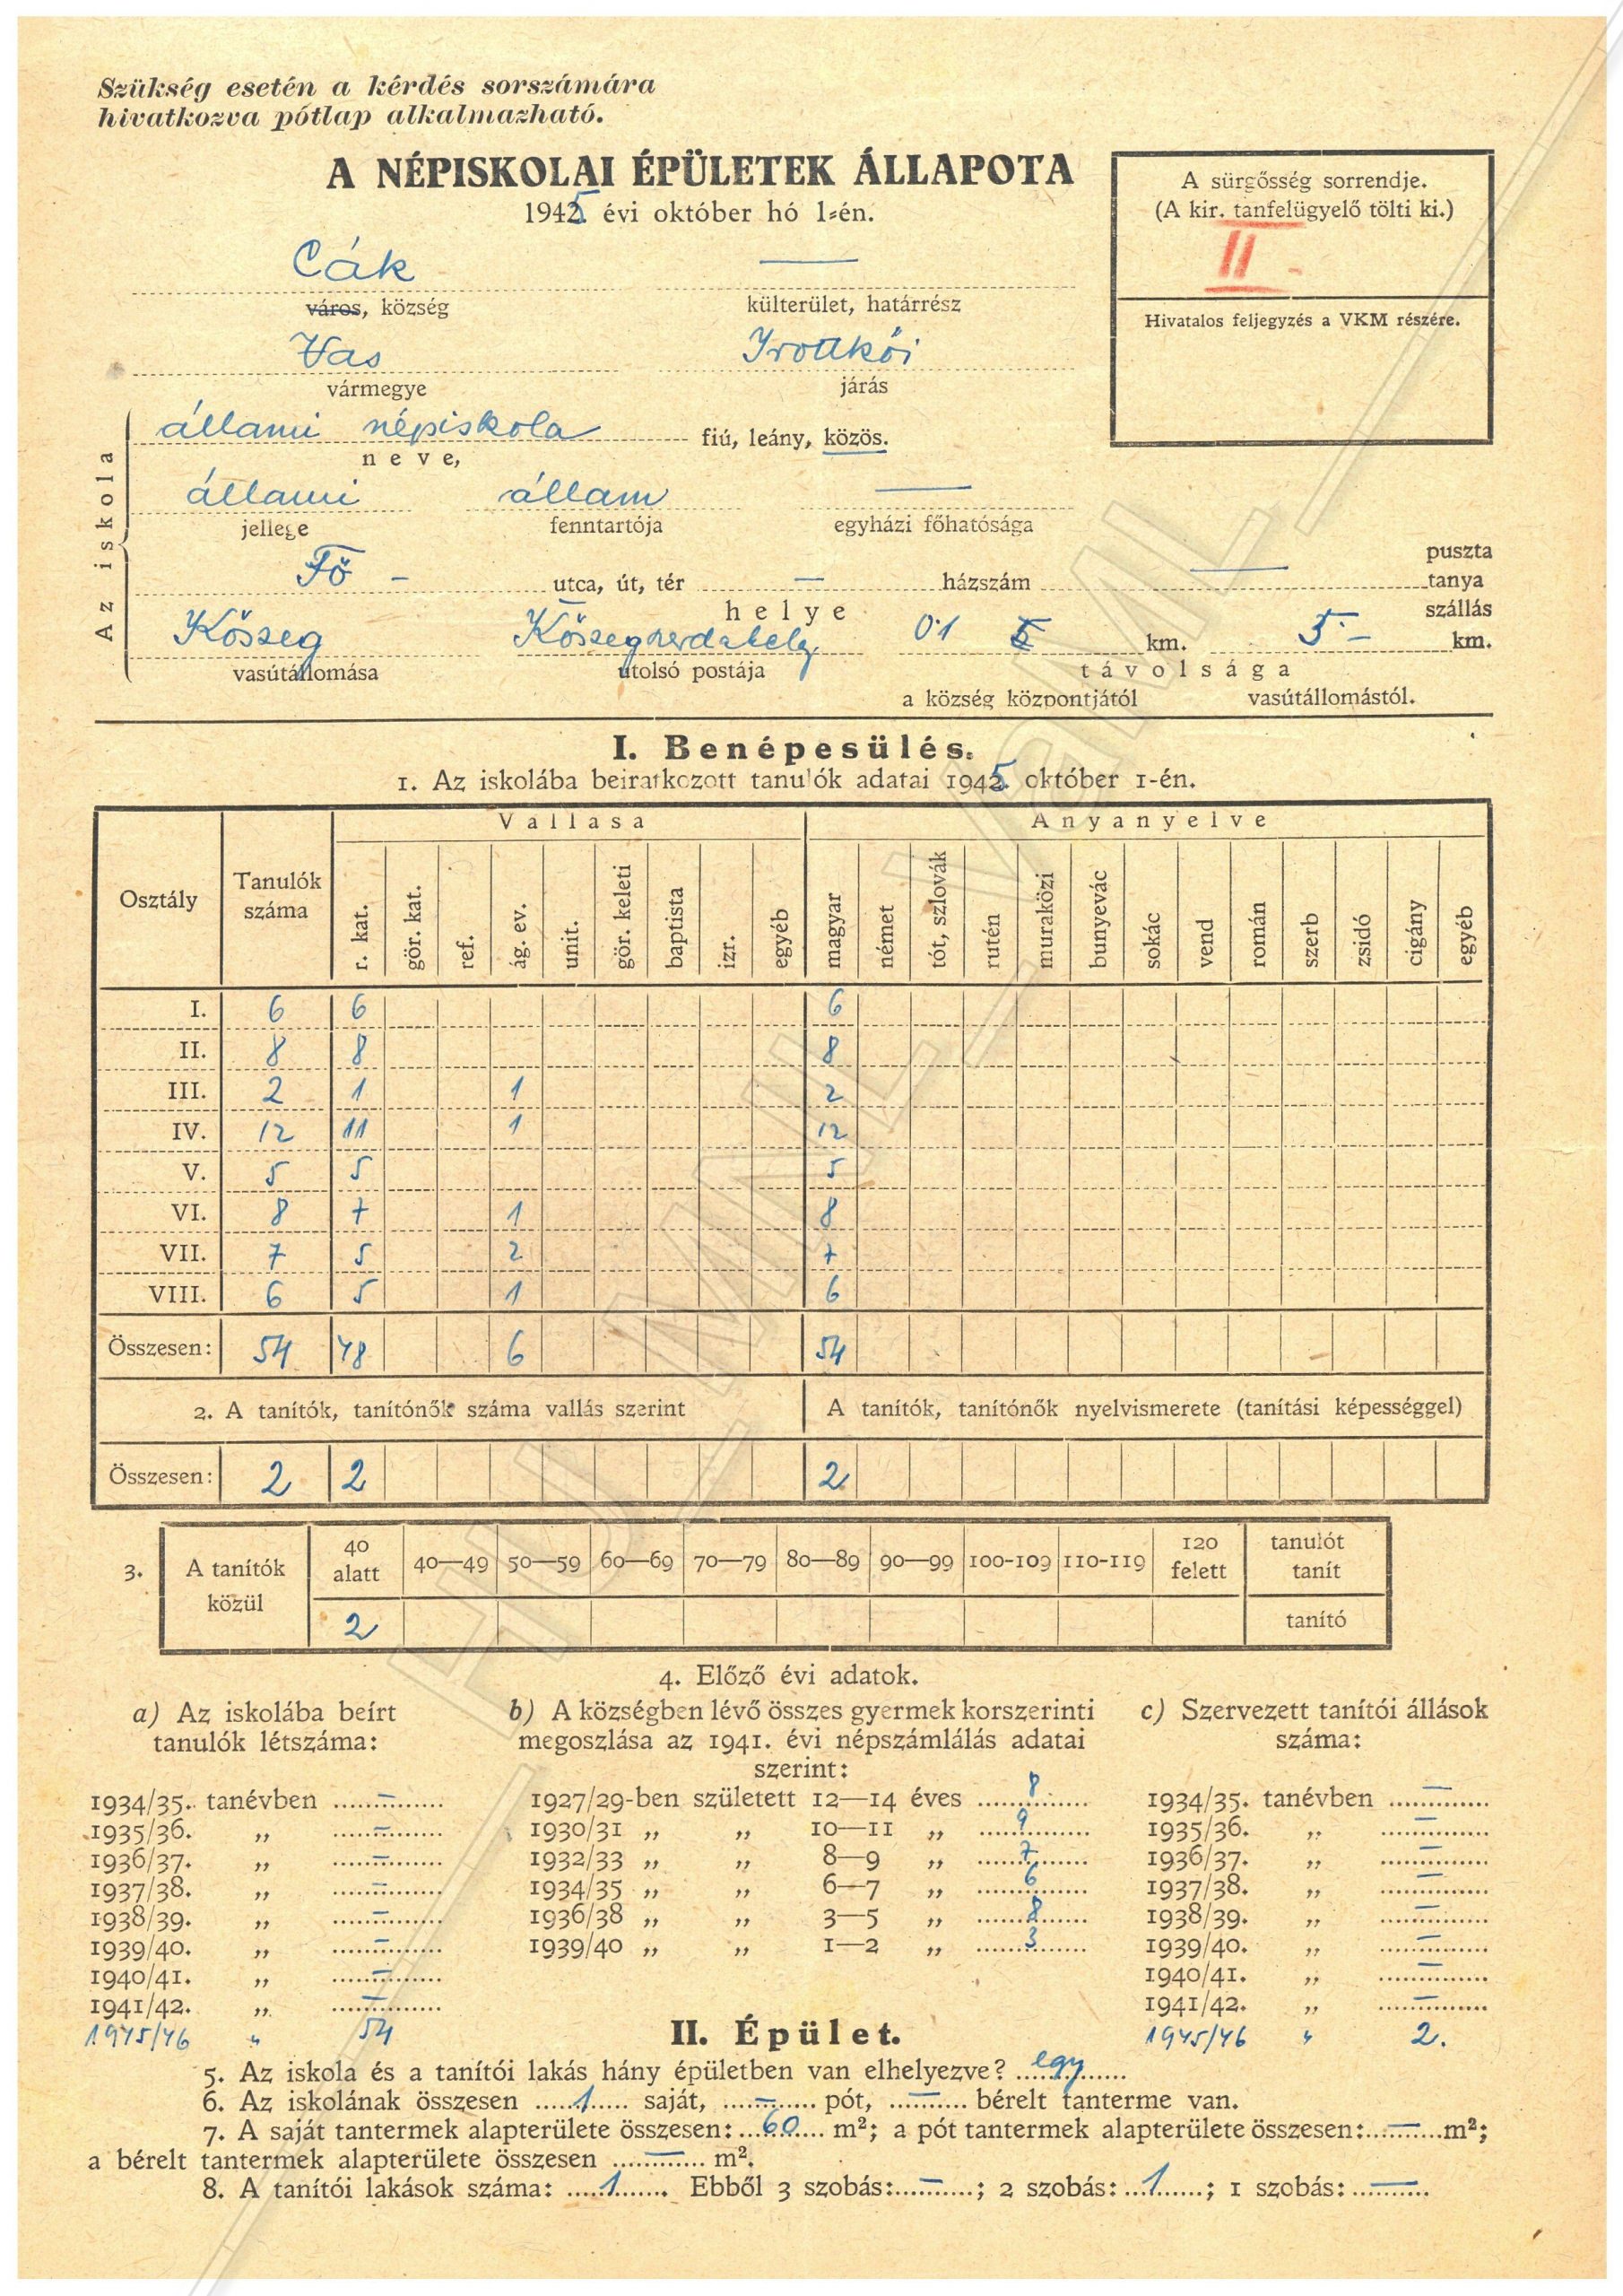 Szükség esetén a kérdés sorszámára
hivatkozva pótlap alkalmazható.
A NÉPISKOLAI ÉPÜLETEK ÁLLAPOTA
1945 évi október hó 1-én.
A sürgősség sorrendje.
(A kir. tanfelügyelő tölti ki.)
II.
Hivatalos feljegyzés a VKM részére.
Cák —
város, község külterület, határrész
Vas Irottkői
vármegye járás
Az iskola
állami népiskola fiú, leány, közös.
neve,
állami állam —
jellege fenntartója egyházi főhatósága
Fő – utca, út, tér — házszám — puszta
tanya
szállás
helye
Kőszeg Kőszegszerdahely 0·1 km. 5·– km.
vasútállomása utolsó postája távolsága
a község központjától vasútállomástól.
I. Benépesülés.
1. Az iskolába beiratkozott tanulók adatai 1945. október 1-én.
Vallasa Anyanyelve
Osztály Tanulók száma r. kat. gör. kat. ref. ág. ev. unit. gör. keleti baptista izr. egyéb magyar német tót, szlovák rutén muraközi bunyevác sokác vend román szerb zsidó cigány egyéb
I. 6 6 6
II. 8 8 8
III. 2 1 1 2
IV. 12 11 1 12
V. 5 5 5
VI. 8 7 1 8
VII. 7 5 2 7
VIII. 6 5 1 6
Összesen: 54 48 6 54
2. A tanítók, tanítónők száma vallás szerint A tanítók, tanítónők nyelvismerete (tanítási képességgel)
Összesen: 2 2 2
3. A tanítók közül 40 alatt 40—49 50—59 60—69 70—79 80—89 90—99 100-109 110-119 120 felett tanulót tanít
2 tanító
4. Előző évi adatok.
a) Az iskolába beírt
tanulók létszáma:
b) A községben lévő összes gyermek korszerinti
megoszlása az 1941. évi népszámlálás adatai
szerint:
c) Szervezett tanítói állások
száma:
1934/35. tanévben — 1927/29-ben született 12—14 éves 8 1934/35. tanévben —
1935/36. „ — 1930/31 „ „ 10—11 „ 9 1935/36. „ —
1936/37. „ — 1932/33 „ „ 8—9 „ 7 1936/37. „ —
1937/38. „ — 1934/35 „ „ 6—7 „ 6 1937/38. „ —
1938/39. „ — 1936/38 „ „ 3—5 „ 8 1938/39. „ —
1939/40. „ — 1939/40 „ „ 1—2 „ 3 1939/40. „ —
1940/41. „ — 1940/41. „ —
1941/42. „ — 1941/42. „ —
1945/46 „ 54 1945/46 „ 2.
II. Épület.
5. Az iskola és a tanítói lakás hány épületben van elhelyezve? egy
6. Az iskolának összesen 1 saját, — pót, — bérelt tanterme van.
7. A saját tantermek alapterülete összesen: 60 m²; a pót tantermek alapterülete összesen: — m²;
a bérelt tantermek alapterülete összesen — m².
8. A tanítói lakások száma: 1. Ebből 3 szobás: —; 2 szobás: 1; 1 szobás: —
HU_MNL_VaML